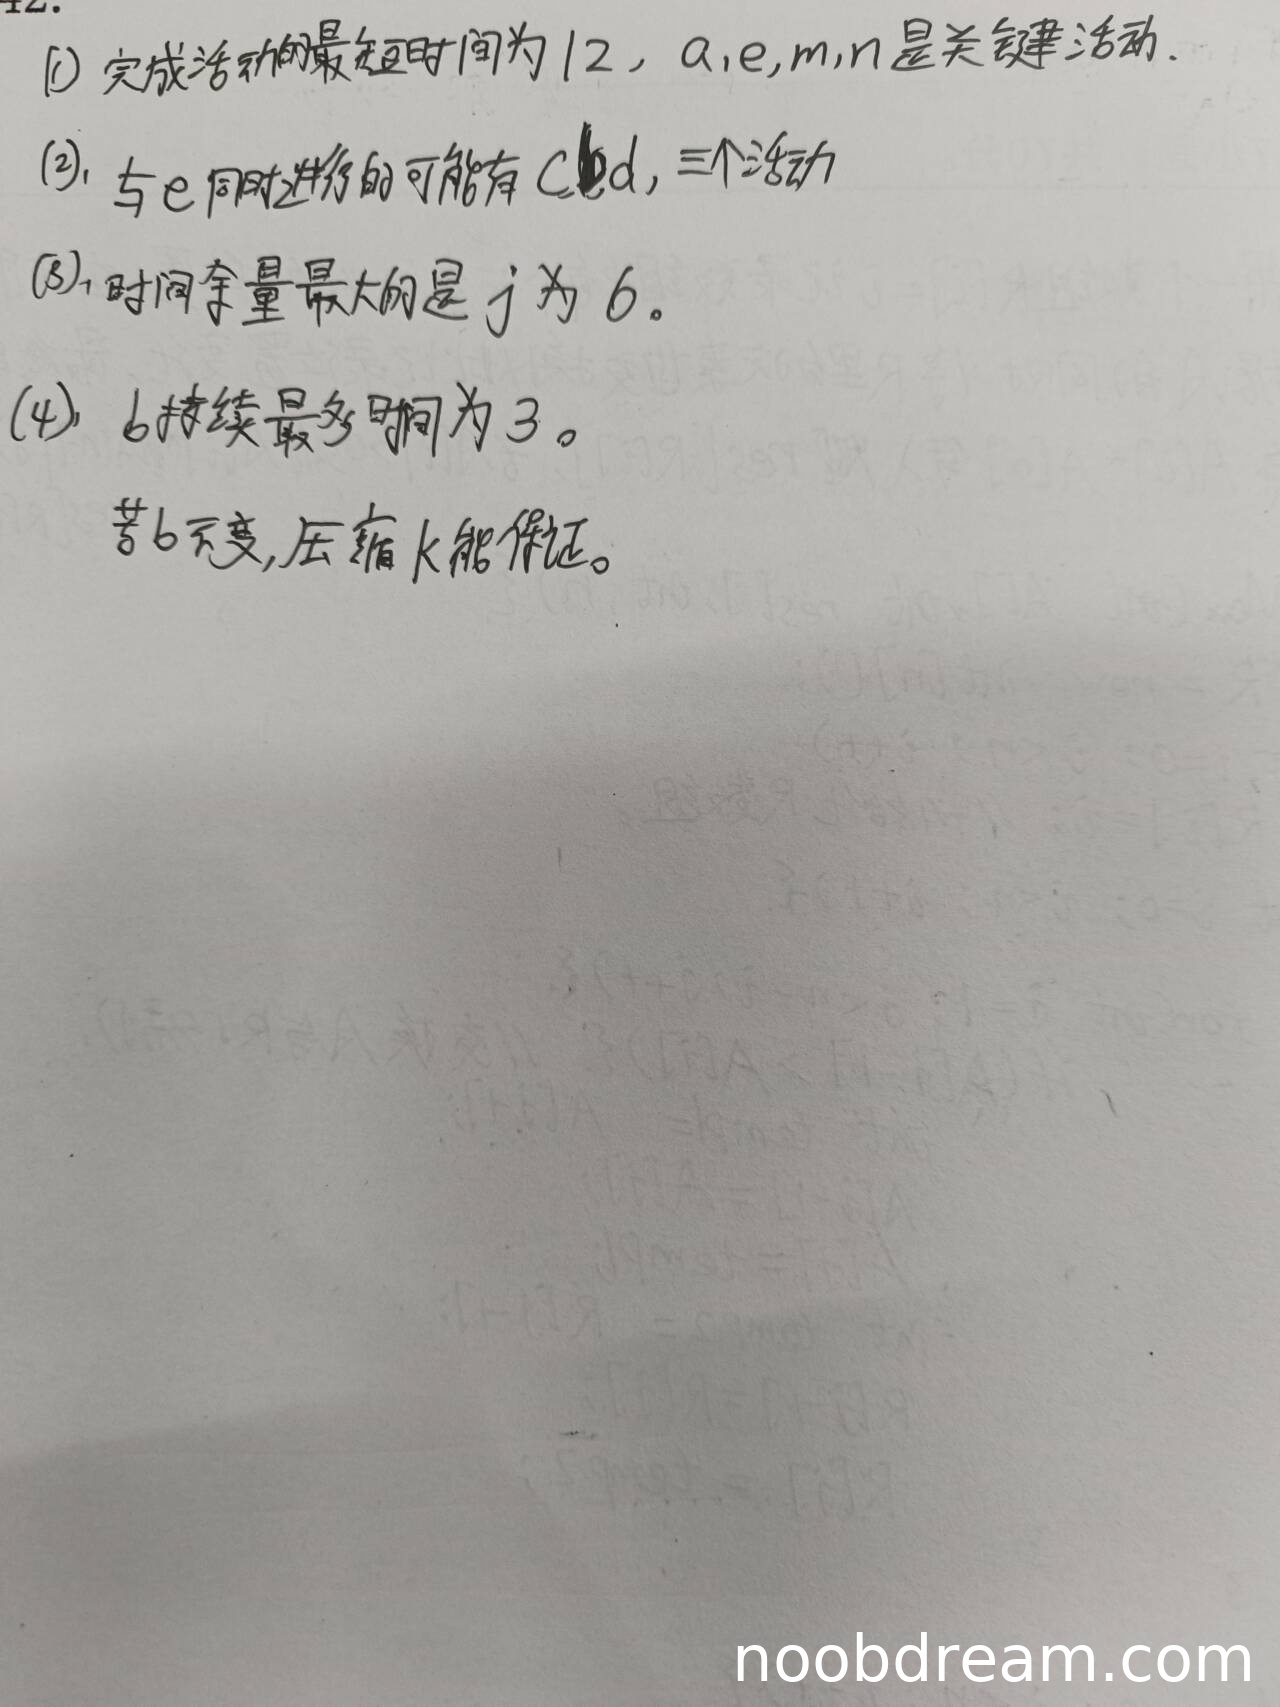 42.
(1) 完成活动的最短时间为12, a,e,m,n是关键活动.
(2), 与e同时进行的可能有Cbd, 三个活动
(3), 时间余量最大的是j为6。
(4), b持续最多时间为3。
若b不变,压缩k能保证。
noobdream.com